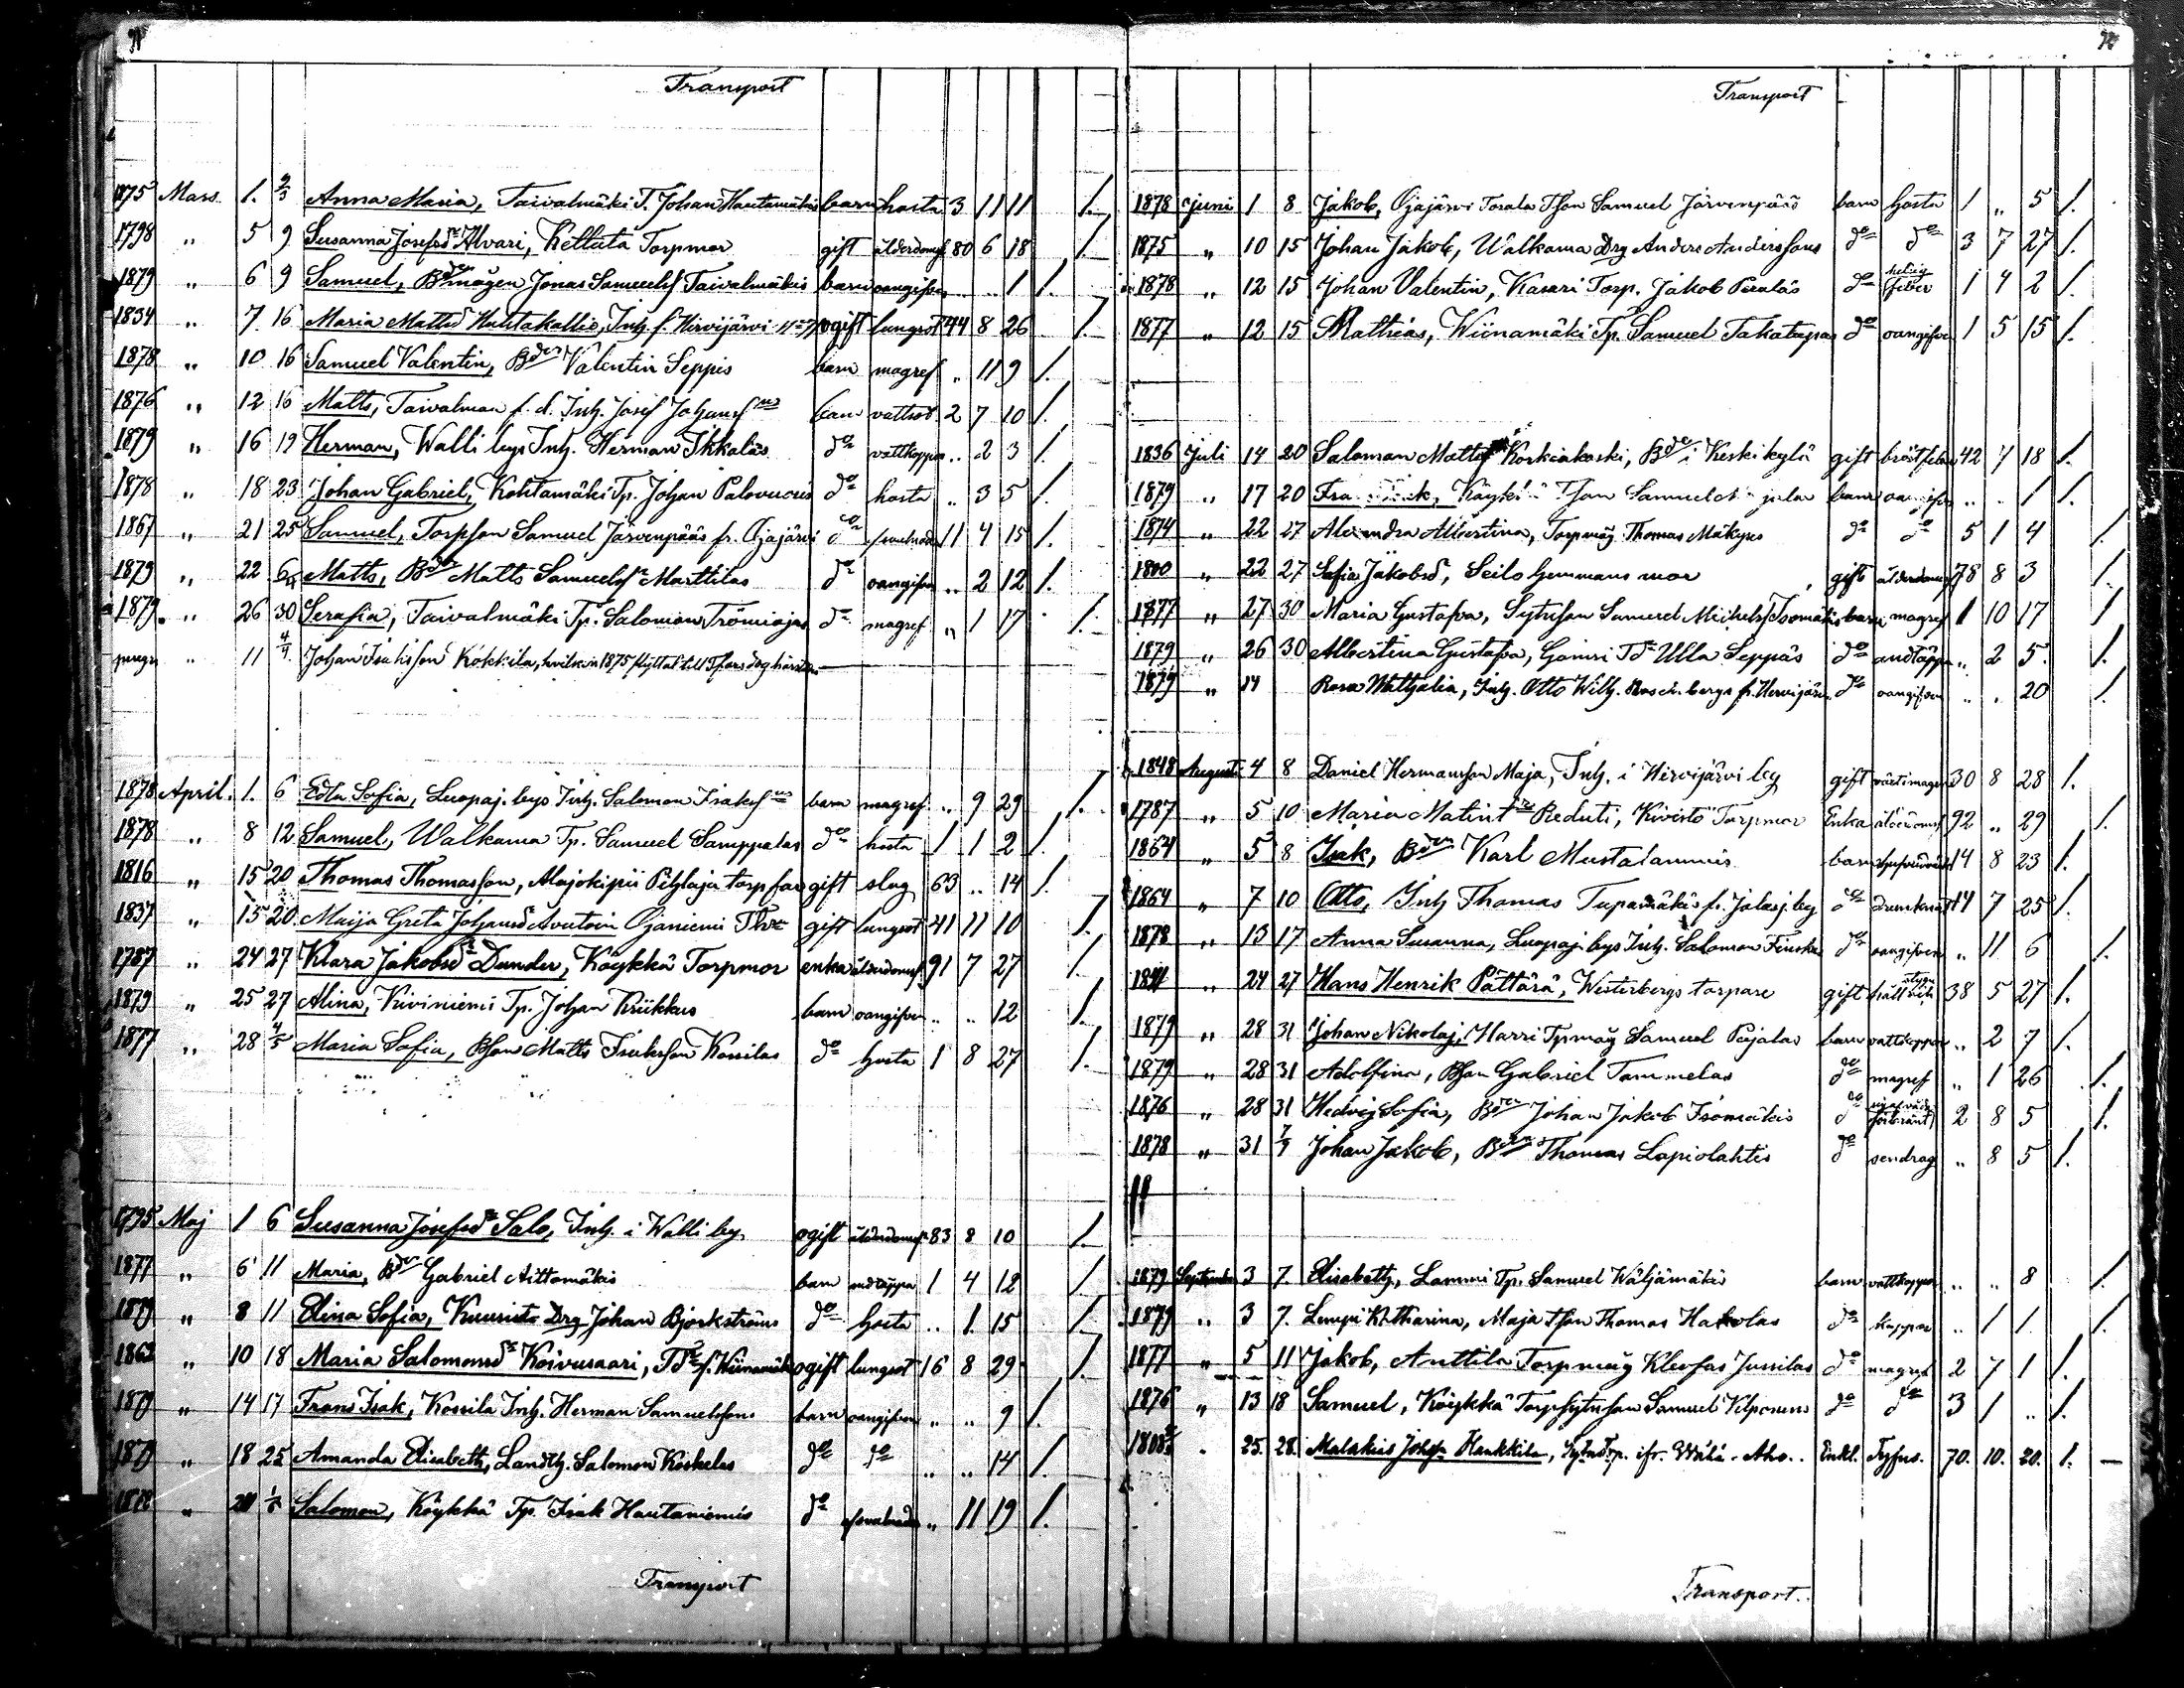 Transport
1875 Mars 1. 2/3 Anna Maria, Taivalmäki T. Johan Hautamäkis barn hosta 3 11 11 1.
1798 „ 5 9 Susanna Josefsdr Alvari, Kettuta Torpmor gift ålderdomsf 80 6 18 1.
1879 „ 6 9 Samuel, Bdemågen Jonas Samuelss Taivalmäkis barn oangifven „ „ 1 1.
1834 „ 7 16 Maria Mattsd Huhtakallio, Inh. f. Hirvijärvi ogift lungsot 44 8 26 1.
1878 „ 10 16 Samuel Valentin, Bden Valentin Seppis barn magref „ 11 9 1.
1876 „ 12 16 Matts, Taivalman f. d. Inh. Josef Johanss barn vattsot 2 7 10 1.
1879 „ 16 19 Herman, Walli bys Inh. Herman Ikkaläs do vattkoppor „ 2 3 1.
1878 „ 18 23 Johan Gabriel, Kohtamäki Tp. Johan Palovuoris do hosta „ 3 5 1.
1867 „ 21 25 Samuel, Torpson Samuel Järvenpääs fr. Ojajärvi do 11 4 15 1.
1879 „ 22 6/4 Matts, Bden Matts Samuelss Marttilas do oangifven „ 2 12 1.
1879 „ 26 30 Serafia, Taivalmäki Tp. Salomon Trömiojas do magref „ 1 17 1.
„ 11 4/4 Johan Isaksson Kokkila, hvilken 1875 flyttat till
1878 April. 1. 6 Edla Sofia, Luopaj. bys Inh. Salomon Isakss barn magref „ 9 29 1.
1878 „ 8 12 Samuel, Walkama Tp. Samuel Samppalas do hosta 1 1 2 1.
1816 „ 15 20 Thomas Thomasson, Alajokipii Pihlaja torpfar gift slag 63 „ 14 1.
1837 „ 15 20 Maija Greta Johansd Ojaniemi gift lungsot 41 11 10 1.
1787 „ 24 27 Klara Jakobsdr Dunder, Köykkä Torpmor enka ålderdomsf. 91 7 27 1
1879 „ 25 27 Alina, Kiviniemi Tp. Johan Kiikkus barn oangifven „ „ 12 1.
1877 „ 28 4/5 Maria Sofia, Bson Matts Isaksson Kossilas do hosta 1 8 27 1.
1795 Maj 1 6 Susanna Josefsdr Salo, Inh. i Walli by ogift ålderdomsf. 83 8 10 1.
1877 „ 6 11 Maria, Bden Gabriel Aittomäkis barn andtäppa 1 4 12 1
1879 „ 8 11 Elina Sofia, Kuusisto Drg Johan Bjorkströms do hosta „ 1. 15 1
1862 „ 10 18 Maria Salomonsdr Koivusaari, ogift lungsot 16 8 29 1.
1879 „ 14 17 Frans Isak, Kossila Inh. Herman Samuelssons barn oangifven „ „ 9 1.
1879 „ 18 25 Amanda Elisabeth, Landth. Salomon Koskelas do do „ „ 14 1.
1878 „ Salomon, Köykkä Tp. Isak Hautaniemis do „ 11 19 1.
Transport
Transport
1878 Juni 1 8 Jakob, Ojajärvi Torala Tson Samuel Järvenpääs barn hosta 1 „ 5 1.
1875 „ 10 15 Johan Jakob, Walkama Drg Anders Anderssons do do 3 7 27 1.
1878 „ 12 15 Johan Valentin, Kasari Torp. Jakob Peraläs do feber 1 4 2 1.
1877 „ 12 15 Mathias, Wiinamäki Tp. Samuel Takatupas do oangifven 1 5 15 1.
1836 Juli 14 20 Salomon Mattss Korkiakoski, Bde i Keskikylä gift bröstfeber 42 7 18 1.
1879 „ 17 20 barn oangifven „ „ 1 1.
1874 „ 22 27 Alexandra Albertina, Torpmåg Thomas Mäkynes do do 5 1 4 1.
1800 „ 22 27 Sofia Jakobsdr, Seilo hemmans mor gift ålderdomsf 78 8 3 1.
1877 „ 27 30 Maria Gustafva, Sytnson Samuel Mickelss Isomäkis barn magref 1 10 17 1
1879 „ 26 30 Albertina Gustafva, Ulla Seppäs do andtäppa „ 2 5 1.
1879 „ 14 Rosa Mathalia, Inh. Otto Wilh. fr. Hirvijärvi do oangifven „ „ 20 1.
1848 Augusti 4 8 Daniel Hermansson Maja, Inh. i Hirvijärvi by gift 30 8 28 1.
1787 „ 5 10 Maria Matint Reduti, Kivistö Torpmor Enka ålderdomsf 92 „ 29 1.
1864 „ 5 8 Isak, Bden Karl Mustalammis barn 14 8 23 1.
1864 „ 7 10 Otto, Inh Thomas Tupamäkis fr. Jalasj. by do drunknat 14 7 25 1.
1878 „ 13 17 Anna Susanna, Luopaj. bys Inh. Salomon do oangifven „ 11 6 1.
1841 „ 24 27 Hans Henrik Pättärä, Westerbergs torpare gift 38 5 27 1.
1879 „ 28 31 Johan Nikolaj, Harri Tpmåg Samuel Pajalas barn vattkoppor „ 2 7 1.
1879 „ 28 31 Adolfina, Bson Gabriel Tammelas do magref „ 1 26 1.
1876 „ 28 31 Hedvig Sofia, Bden Johan Jakob Isomäkis do 2 8 5 1.
1878 „ 31 7/9 Johan Jakob, Bden Thomas Lapiolahtis do sendrag „ 8 5 1.
1879 September 3 7 Elisabeth, Lammi Tp. Samuel Wäljämäkis barn vattkoppor „ „ 8 1
1879 „ 3 7. Lempi Katharina, Maja Tson Thomas Hakolas do koppor „ 1 1 1.
1877 „ 5 11 Jakob, Anttila Torpmåg Kleofas Jussilas do magref 2 7 1 1.
1876 „ 13 18 Samuel, Köykkä Torpsytnson Samuel Vilponens do do 3 1 „ 1.
1808 „ 25. 28. Malakias Johss Haukkila, Enkl. Tyfus. 70. 10. 20. 1.
Transport.